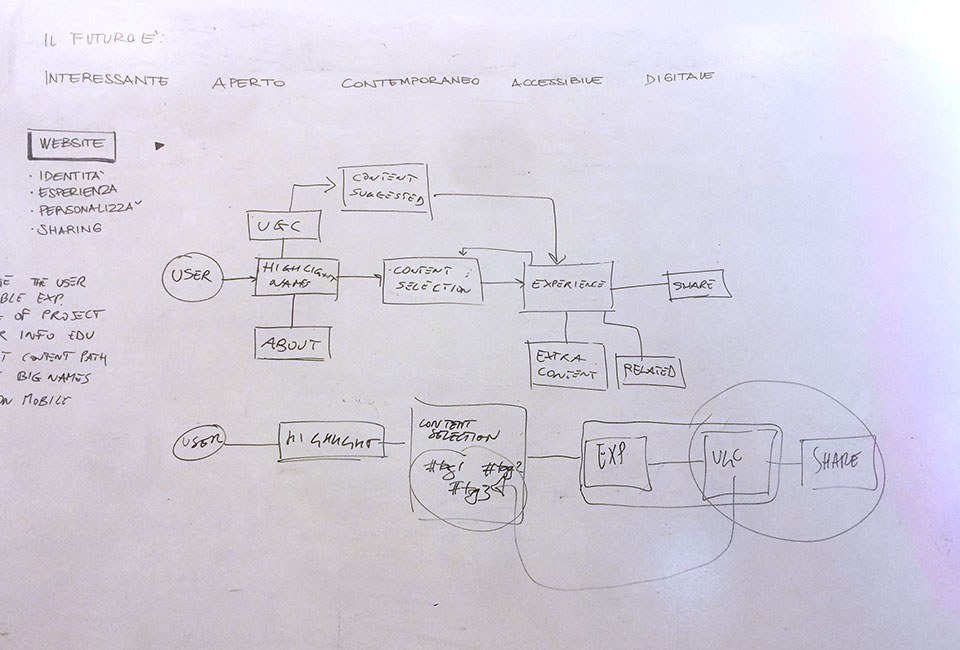 IL FUTURO E':
INTERESSANTE APERTO CONTEMPORANEO ACCESSIBILE DIGITALE
WEBSITE
· IDENTITA'
· ESPERIENZA
· PERSONALIZZA
· SHARING
THE USER
BLE EXP.
OF PROJECT
R INFO EDU
T CONTENT PATH
BIG NAMES
ON MOBILE
CONTENT
SUGGESTED
UGC
USER
HIGHLIGHT
NAMES
CONTENT
SELECTION
EXPERIENCE
SHARE
ABOUT
EXTRA
CONTENT
RELATED
USER
HIGHLIGHT
CONTENT
SELECTION
#tag1 #tag2
#tag3
EXP
UGC
SHARE